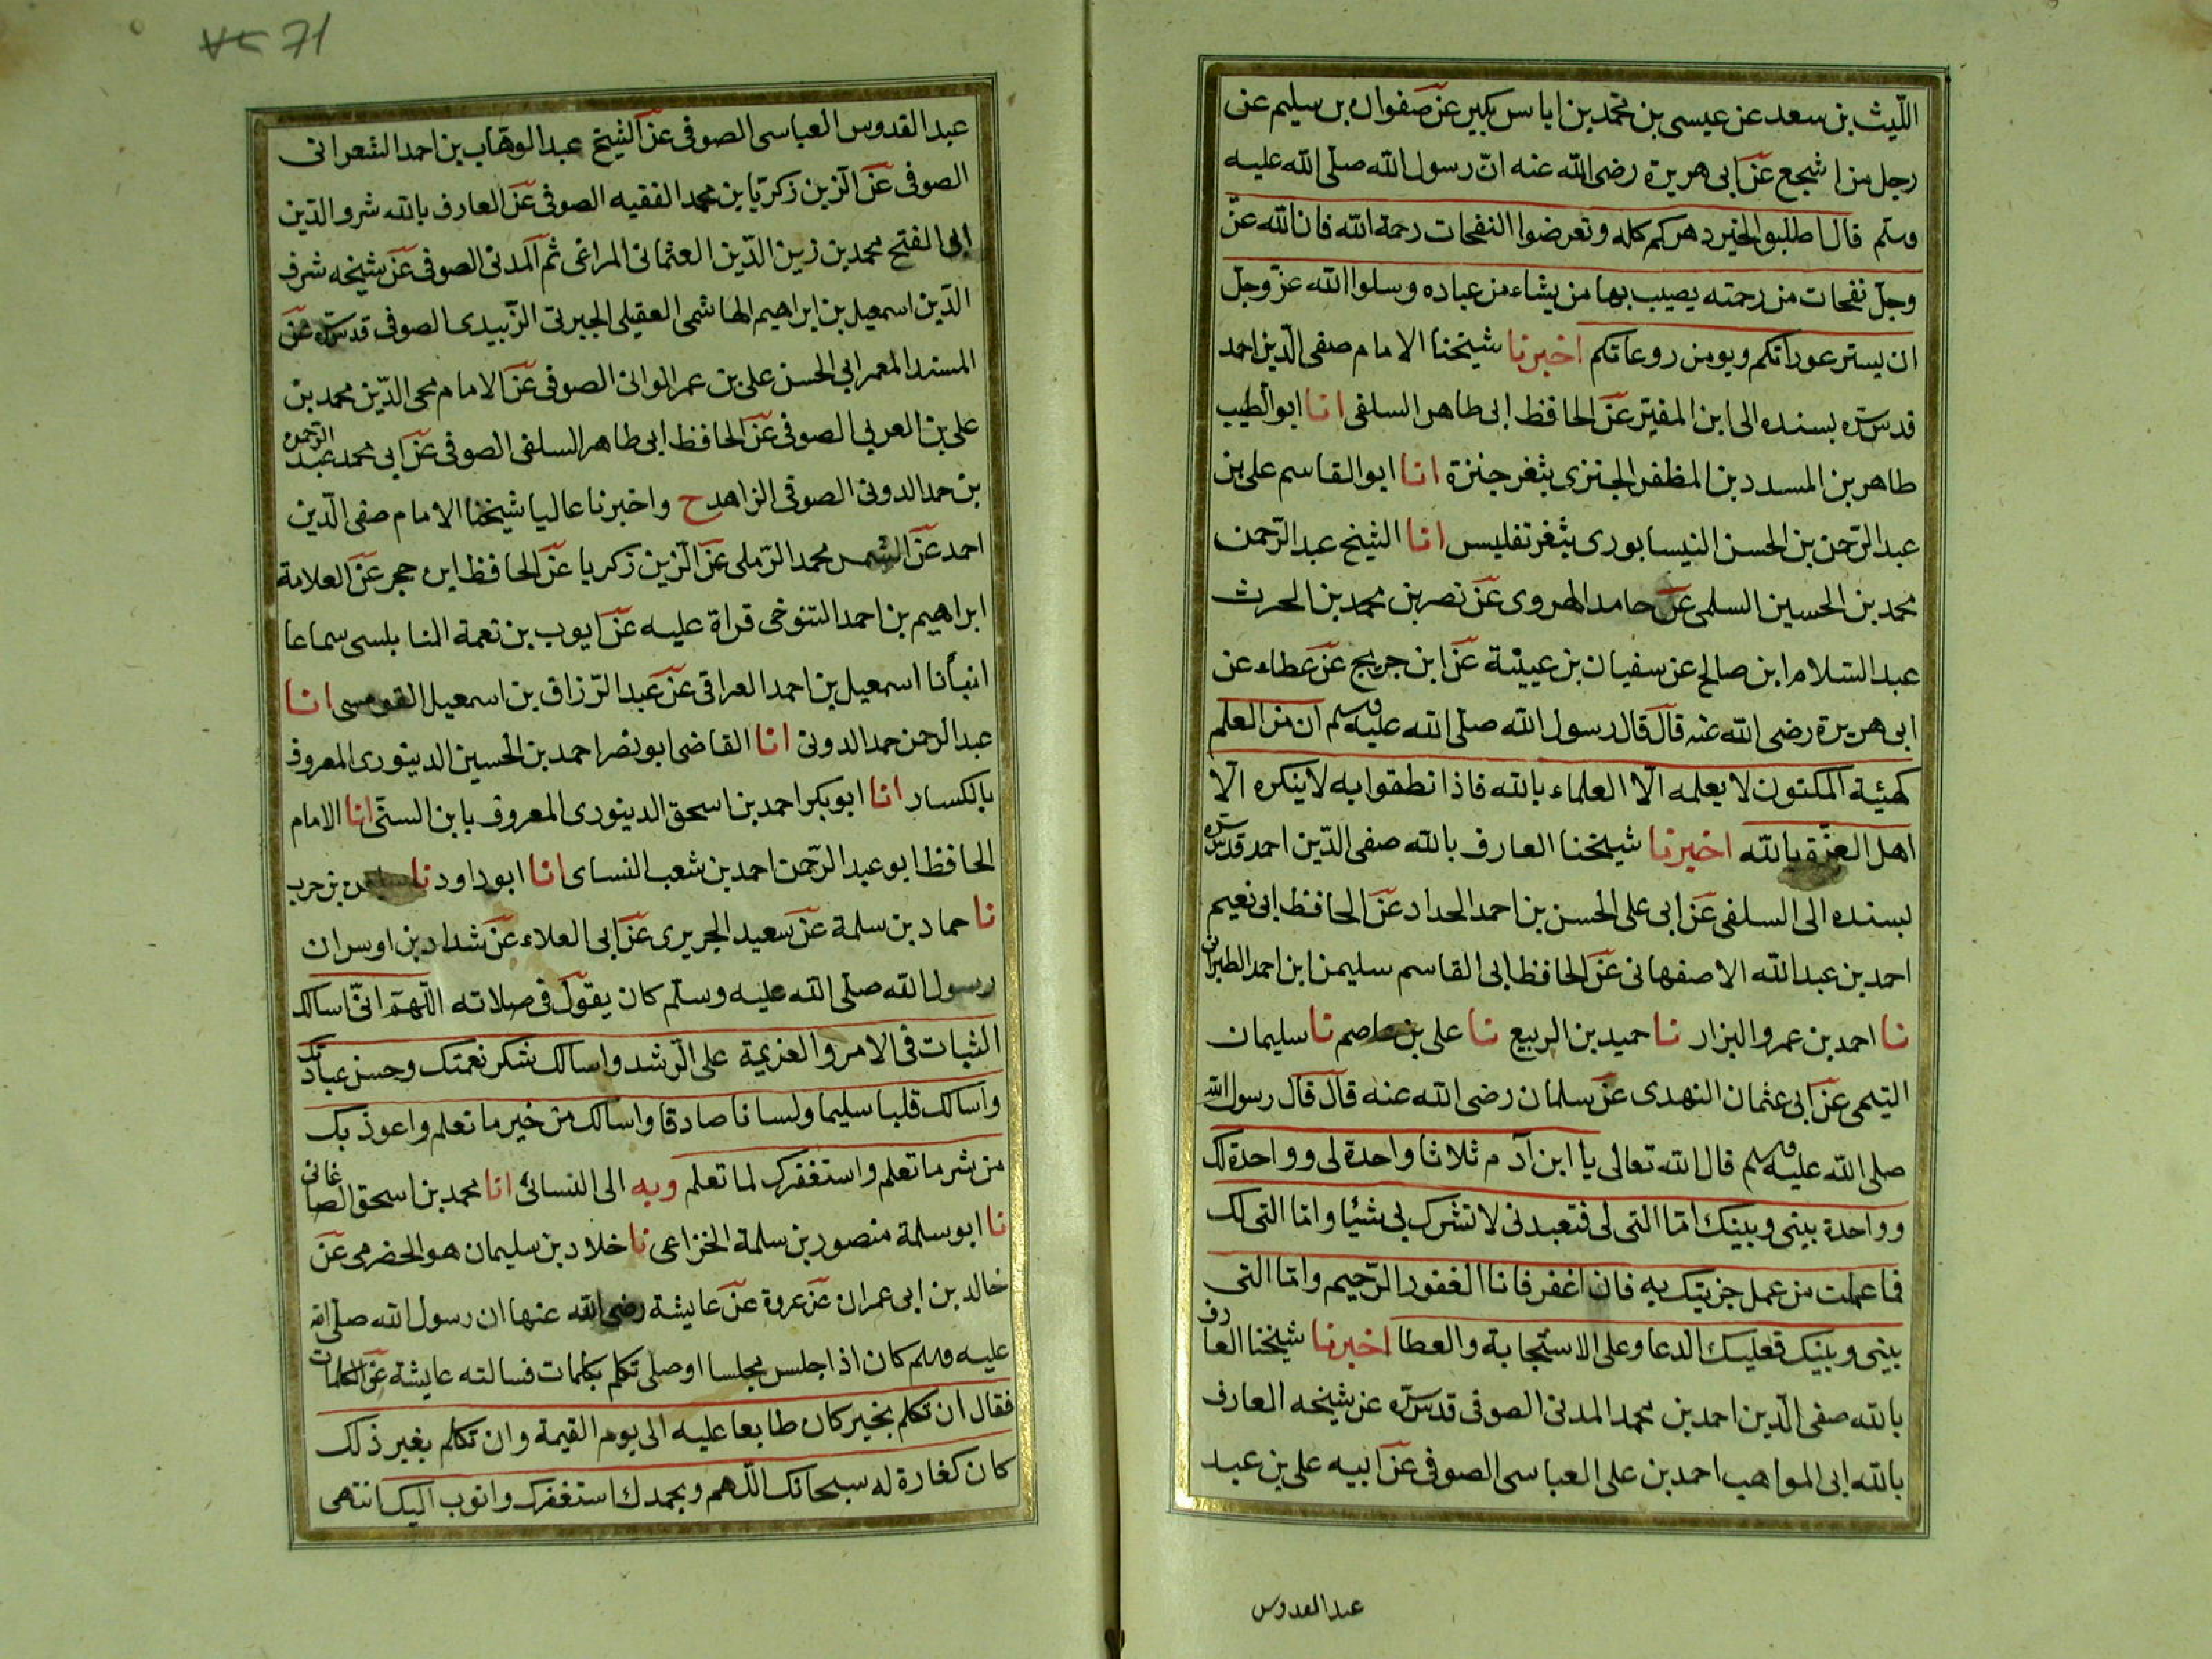 الليث بن سعد عن عيسى بن محمد بن اياس بكير عن صفوان بن سليم عن
رجل من اشجع عن ابى هريرة رضى الله عنه ان رسول الله صلى الله عليه
وسلم قال اطلبوا الخير دهركم كله وتعرضوا النفحات رحمة الله فان الله عز
وجل نفحات من رحمته يصيب بها من يشاء من عباده وسلوا الله عز وجل
ان يستر عوراتكم ويومن روعاتكم اخبرنا شيخنا الامام صفى الدين احمد
قدس سره بسنده الى ابن المقير عن الحافظ ابى طاهر السلفى انا ابو الطيب
طاهر بن المسدد بن المظفر الجنزى بثغر جنزة انا ابو القاسم على بن
عبد الرحمن بن الحسن النيسابورى بثغر تفليس انا الشيخ عبد الرحمن
محمد بن الحسين السلمى عن حامد الهروى عن نصر بن محمد بن الحرث
عبد السلام ابن صالح عن سفيان بن عيينة عن ابن جريج عن عطاء عن
ابى هريرة رضى الله عنه قال قال رسول الله صلى الله عليه وسلم ان من العلم
كهيئة المكنون لا يعلمه الا العلماء بالله فاذا نطقوا به لا ينكره الا
اهل العزة بالله اخبرنا شيخنا العارف بالله صفى الدين احمد قدس سره
بسنده الى السلفى عن ابى على الحسن بن احمد الحداد عن الحافظ ابى نعيم
احمد بن عبد الله الاصفهانى عن الحافظ ابى القاسم سليمن ابن احمد الطبرانى
نا احمد بن عمرو البزار نا حميد بن الربيع نا على بن عاصم نا سليمان
التيمى عن ابى عثمان النهدى عن سلمان رضى الله عنه قال قال رسول الله
صلى الله عليه وسلم قال الله تعالى يا ابن آدم ثلاثا واحدة لى وواحدة لك
وواحدة بينى وبينك اما التى لى فتعبدنى لا تشرك بى شيئا واما التى لك
فما عملت من عمل جزيتك به فان اغفر فانا الغفور الرحيم واما التى
بينى وبينك فعليك الدعا وعلى الاستجابة والعطا اخبرنا شيخنا العارف
بالله صفى الدين احمد بن محمد المدنى الصوفى قدس سره عن شيخه العارف
بالله ابى المواهب احمد بن على العباسى الصوفى عن ابيه على بن عبد
عبد القدوس
71
عبد القدوس العباسى الصوفى عن الشيخ عبد الوهاب بن احمد الشعرانى
الصوفى عن الزين زكريا بن محمد الفقيه الصوفى عن العارف بالله شرو الدين
ابى الفتح محمد بن زين الدين العثمانى المراغى ثم المدنى الصوفى عن شيخه شرف
الدين اسمعيل بن ابراهيم الهاشمى العقيلى الجبرتى الزبيدى الصوفى قدس سره عن
المسند المعمر ابى الحسن على بن عمر الوانى الصوفى عن الامام محى الدين محمد بن
على بن العربى الصوفى عن الحافظ ابى طاهر السلفى الصوفى عن ابى محمد عبد الرحمن
بن حمد الدونى الصوفى الزاهد ح واخبرنا عاليا شيخنا الامام صفى الدين
احمد عن الشمس محمد الرملى عن الزين زكريا عن الحافظ ابن حجر عن العلامة
ابراهيم بن احمد التنوخى قراة عليه عن ايوب بن نعمة النابلسى سماعا
انبأنا اسمعيل بن احمد العراقى عن عبد الرزاق بن اسمعيل القومسى انا
عبد الرحمن حمد الدونى انا القاضى ابو نصر احمد بن الحسين الدينورى المعروف
بالكسار انا ابو بكر احمد بن اسحق الدينورى المعروف بابن السنى انا الامام
الحافظ ابو عبد الرحمن احمد بن شعب النساى انا ابو داود نا بن حرب
نا حماد بن سلمة عن سعيد الجريرى عن ابى العلاء عن شداد بن اوس ان
رسول الله صلى الله عليه وسلم كان يقول فى صلاته اللهم انى اسالك
الثبات فى الامر والعزيمة على الرشد واسالك شكر نعمتك وحسن عبادتك
واسالك قلبا سليما ولسانا صادقا واسالك من خير ما تعلم واعوذ بك
من شر ما تعلم واستغفرك لما تعلم وبه الى النسائى انا محمد بن اسحق الصاغانى
نا ابو سلمة منصور بن سلمة الخزاعى نا خلاد بن سليمان هو الحضرمى عن
خالد بن ابى عمران عن عروة عن عايشة رضى الله عنها ان رسول الله صلى الله
عليه وسلم كان اذا جلس مجلسا او صلى تكلم بكلمات فسالته عايشة عن الكلمات
فقال ان تكلم بخير كان طابعا عليه الى يوم القيمة وان تكلم بغير ذلك
كان كفارة له سبحانك اللهم وبحمدك استغفرك واتوب اليك انتهى